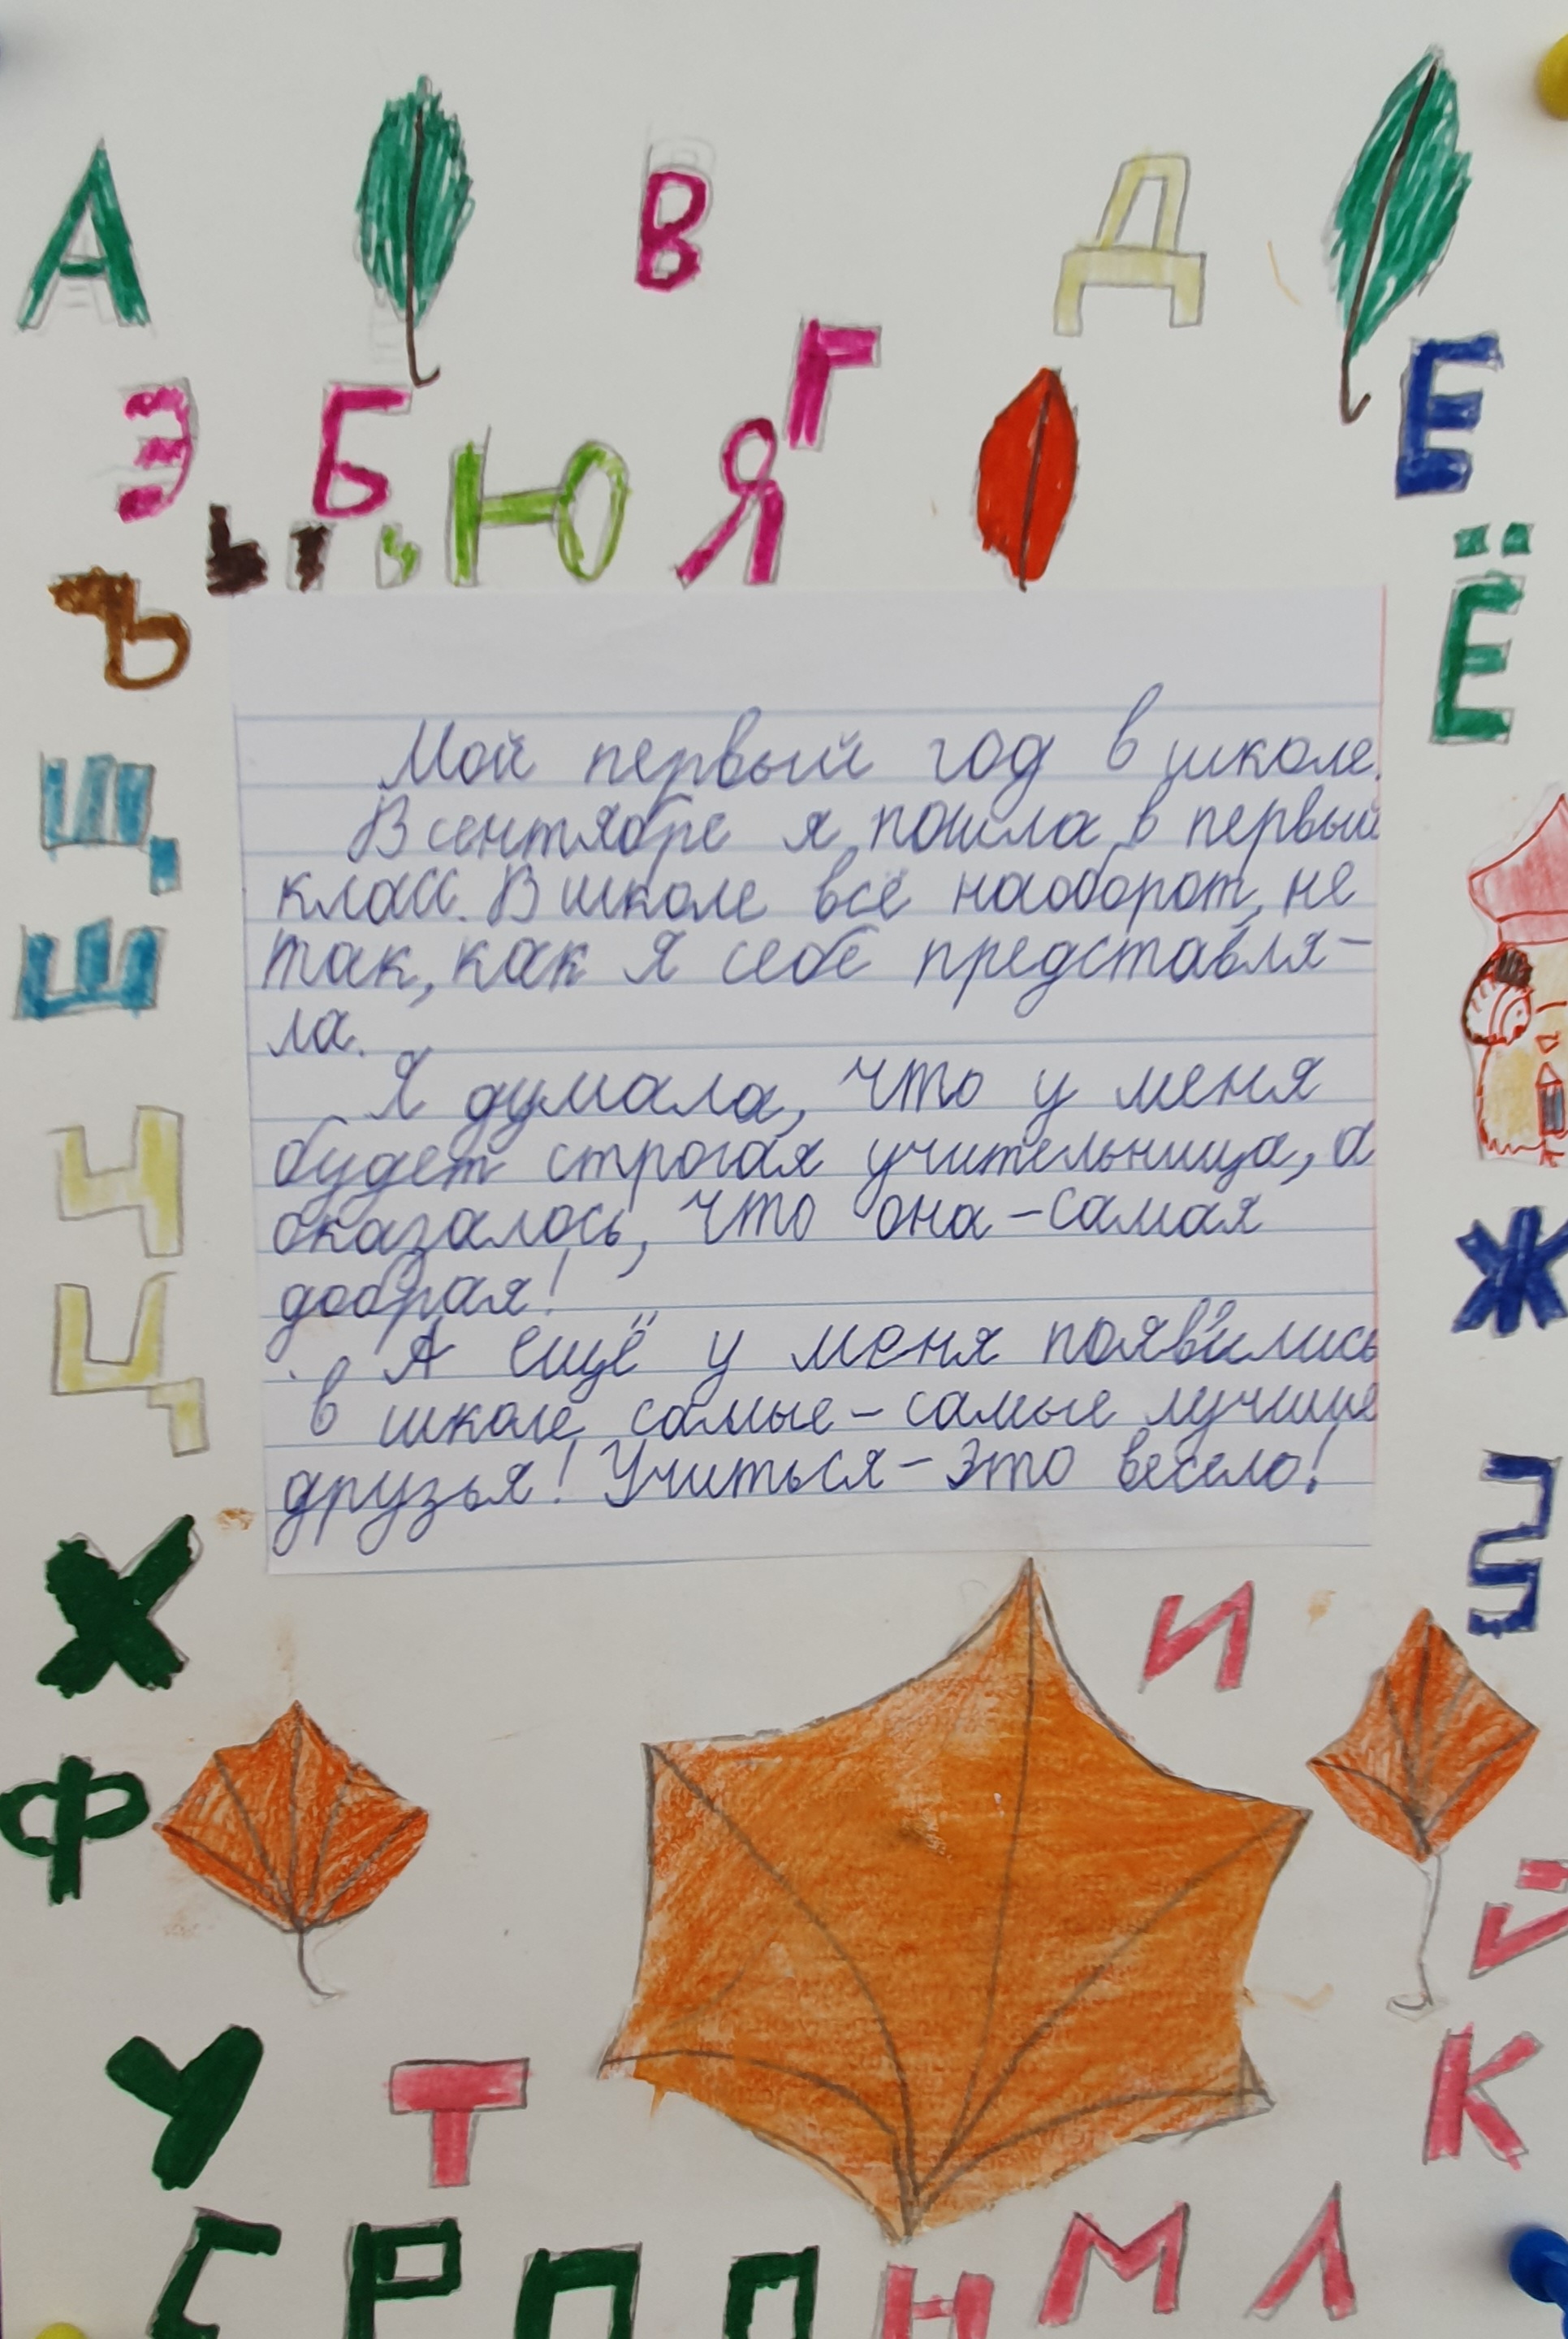 А В Д
Г
Е
Э Б Ю Я
Ы Ь
Ё
Ъ
Щ
Ш
Ч
Ц
Х
Ф
Мой первый год в школе.
В сентябре я пошла в первый
класс. В школе всё наоборот, не
так, как я себе представля-
ла.
Я думала, что у меня
будет строгая учительница, а
оказалось, что она - самая
добрая!
А ещё у меня появились
в школе самые - самые лучшие
друзья! Учиться - это весело!
Ж
З
И
Й
К
У Т
С Р П О Н М Л